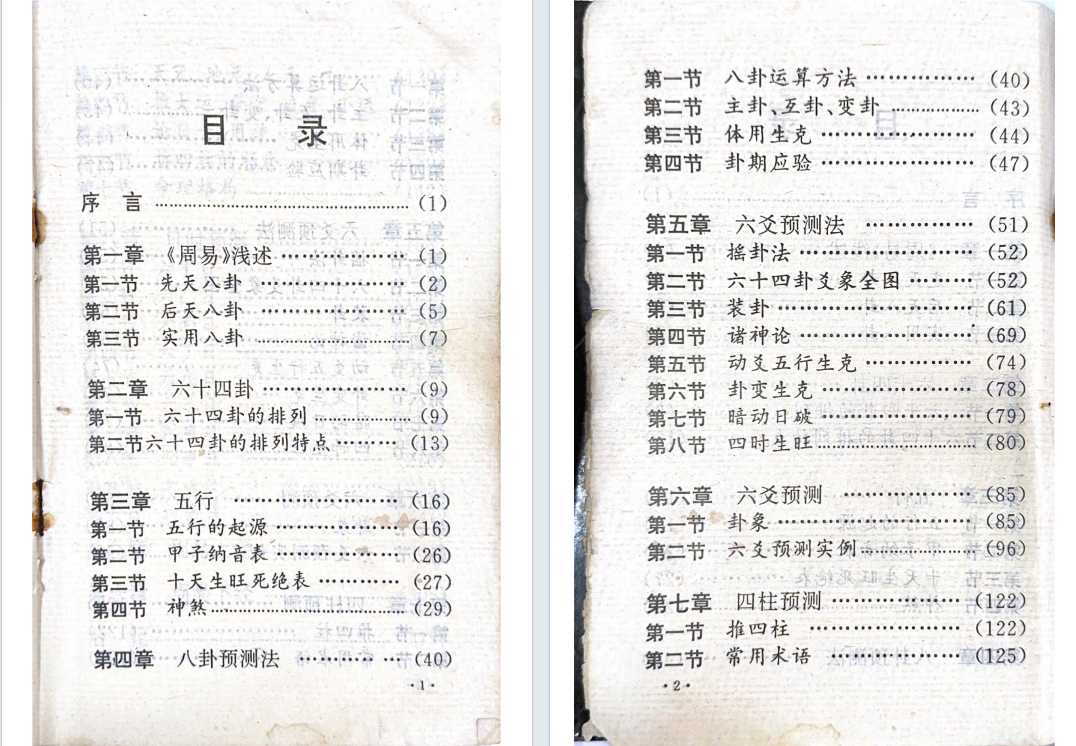 目 录
序 言 ………………………………………… (1)
第一章 《周易》浅述 …………… (1)
第一节 先天八卦 ……………… (2)
第二节 后天八卦 ……………… (5)
第三节 实用八卦 ……………… (7)
第二章 六十四卦 ……………… (9)
第一节 六十四卦的排列 ……………… (9)
第二节六十四卦的排列特点 ……… (13)
第三章 五行 ……………… (16)
第一节 五行的起源 …………… (16)
第二节 甲子纳音表 …………… (26)
第三节 十天生旺死绝表 ………… (27)
第四节 神煞……………………… (29)
第四章 八卦预测法 ………… (40)
·1·
第一节 八卦运算方法 …………… (40)
第二节 主卦、互卦、变卦 …………… (43)
第三节 体用生克 ……………… (44)
第四节 卦期应验 ……………… (47)
第五章 六爻预测法 ………… (51)
第一节 摇卦法 ………………… (52)
第二节 六十四卦爻象全图 ……… (52)
第三节 装卦 …………………… (61)
第四节 诸神论 ………………… (69)
第五节 动爻五行生克 ………… (74)
第六节 卦变生克 ……………… (78)
第七节 暗动日破 ……………… (79)
第八节 四时生旺……………… (80)
第六章 六爻预测 …………… (85)
第一节 卦象 …………………… (85)
第二节 六爻预测实例…………… (96)
第七章 四柱预测 …………… (122)
第一节 推四柱 ……………… (122)
第二节 常用术语 …………… (125)
·2·